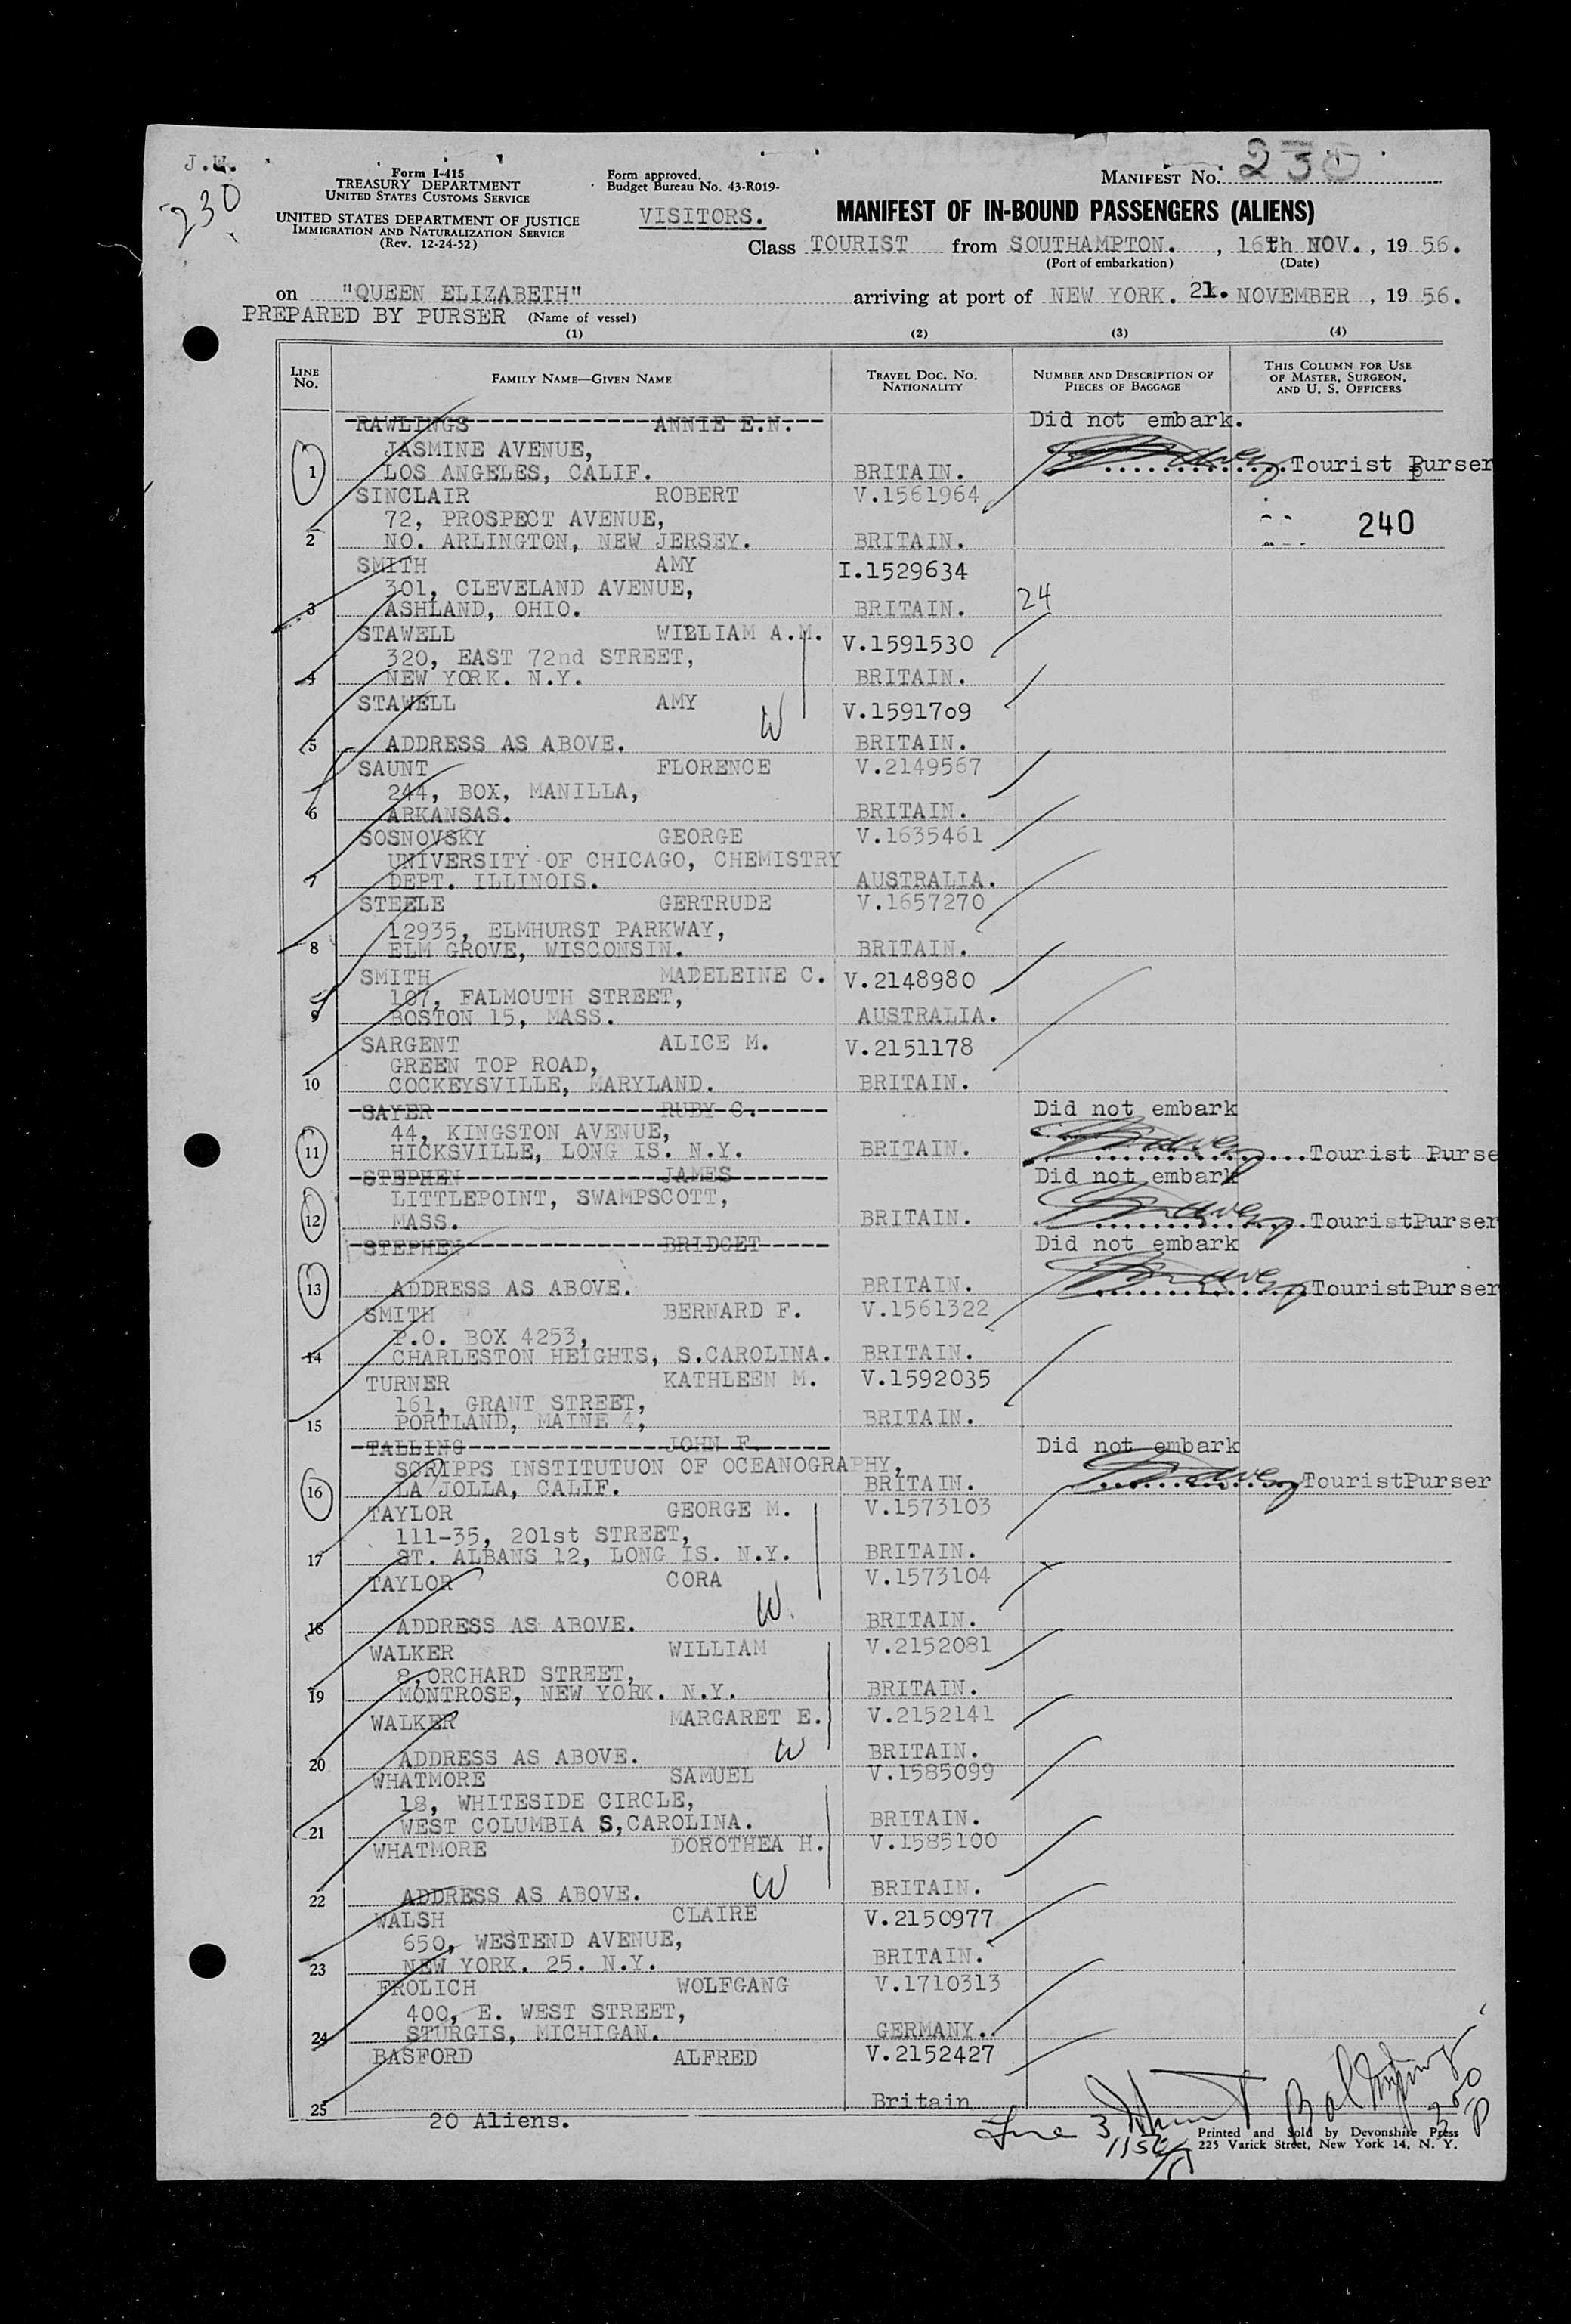 J.W.
230
Form I-415
TREASURY DEPARTMENT
UNITED STATES CUSTOMS SERVICE
UNITED STATES DEPARTMENT OF JUSTICE
IMMIGRATION AND NATURALIZATION SERVICE
(Rev. 12-24-52)
Form approved.
Budget Bureau No. 43-R019-
VISITORS.
MANIFEST No. 230
MANIFEST OF IN-BOUND PASSENGERS (ALIENS)
Class TOURIST from SOUTHAMPTON. , 16th NOV. , 19 56.
(Port of embarkation) (Date)
on "QUEEN ELIZABETH" arriving at port of NEW YORK. 21. NOVEMBER , 19 56.
PREPARED BY PURSER (Name of vessel)
(1) (2) (3) (4)
LINE No. FAMILY NAME—GIVEN NAME TRAVEL DOC. No. NATIONALITY NUMBER AND DESCRIPTION OF PIECES OF BAGGAGE THIS COLUMN FOR USE OF MASTER, SURGEON, AND U. S. OFFICERS
RAWLINGS ANNIE E.N. Did not embark.
JASMINE AVENUE,
1 LOS ANGELES, CALIF. BRITAIN. Tourist Purser
SINCLAIR ROBERT V.1561964
72, PROSPECT AVENUE, 240
2 NO. ARLINGTON, NEW JERSEY. BRITAIN.
SMITH AMY I.1529634
301, CLEVELAND AVENUE,
3 ASHLAND, OHIO. BRITAIN. 24
STAWELL WILLIAM A.M. V.1591530
320, EAST 72nd STREET,
4 NEW YORK. N.Y. BRITAIN.
STAWELL AMY V.1591709
W
5 ADDRESS AS ABOVE. BRITAIN.
SAUNT FLORENCE V.2149567
244, BOX, MANILLA,
6 ARKANSAS. BRITAIN.
SOSNOVSKY GEORGE V.1635461
UNIVERSITY OF CHICAGO, CHEMISTRY
7 DEPT. ILLINOIS. AUSTRALIA.
STEELE GERTRUDE V.1657270
12935, ELMHURST PARKWAY,
8 ELM GROVE, WISCONSIN. BRITAIN.
SMITH MADELEINE C. V.2148980
107, FALMOUTH STREET,
9 BOSTON 15, MASS. AUSTRALIA.
SARGENT ALICE M. V.2151178
GREEN TOP ROAD,
10 COCKEYSVILLE, MARYLAND. BRITAIN.
SAYER RUBY C. Did not embark
44, KINGSTON AVENUE,
11 HICKSVILLE, LONG IS. N.Y. BRITAIN. Tourist Purse
STEPHEN JAMES Did not embark
LITTLEPOINT, SWAMPSCOTT,
12 MASS. BRITAIN. TouristPurser
STEPHEN BRIDGET Did not embark
13 ADDRESS AS ABOVE. BRITAIN. TouristPurser
SMITH BERNARD F. V.1561322
P.O. BOX 4253,
14 CHARLESTON HEIGHTS, S.CAROLINA. BRITAIN.
TURNER KATHLEEN M. V.1592035
161, GRANT STREET,
15 PORTLAND, MAINE 4, BRITAIN.
TALLING JOHN F. Did not embark
SCRIPPS INSTITUTUON OF OCEANOGRAPHY,
16 LA JOLLA, CALIF. BRITAIN. TouristPurser
TAYLOR GEORGE M. V.1573103
111-35, 201st STREET,
17 ST. ALBANS 12, LONG IS. N.Y. BRITAIN.
TAYLOR CORA V.1573104
W.
18 ADDRESS AS ABOVE. BRITAIN.
WALKER WILLIAM V.2152081
8,ORCHARD STREET,
19 MONTROSE, NEW YORK. N.Y. BRITAIN.
WALKER MARGARET E. V.2152141
W
20 ADDRESS AS ABOVE. BRITAIN.
WHATMORE SAMUEL V.1585099
18, WHITESIDE CIRCLE,
21 WEST COLUMBIA S,CAROLINA. BRITAIN.
WHATMORE DOROTHEA H. V.1585100
W
22 ADDRESS AS ABOVE. BRITAIN.
WALSH CLAIRE V.2150977
650, WESTEND AVENUE,
23 NEW YORK. 25. N.Y. BRITAIN.
FROLICH WOLFGANG V.1710313
400, E. WEST STREET,
24 STURGIS, MICHIGAN. GERMANY.
BASFORD ALFRED V.2152427
25 Britain
20 Aliens.
Printed and Sold by Devonshire Press
225 Varick Street, New York 14, N. Y.